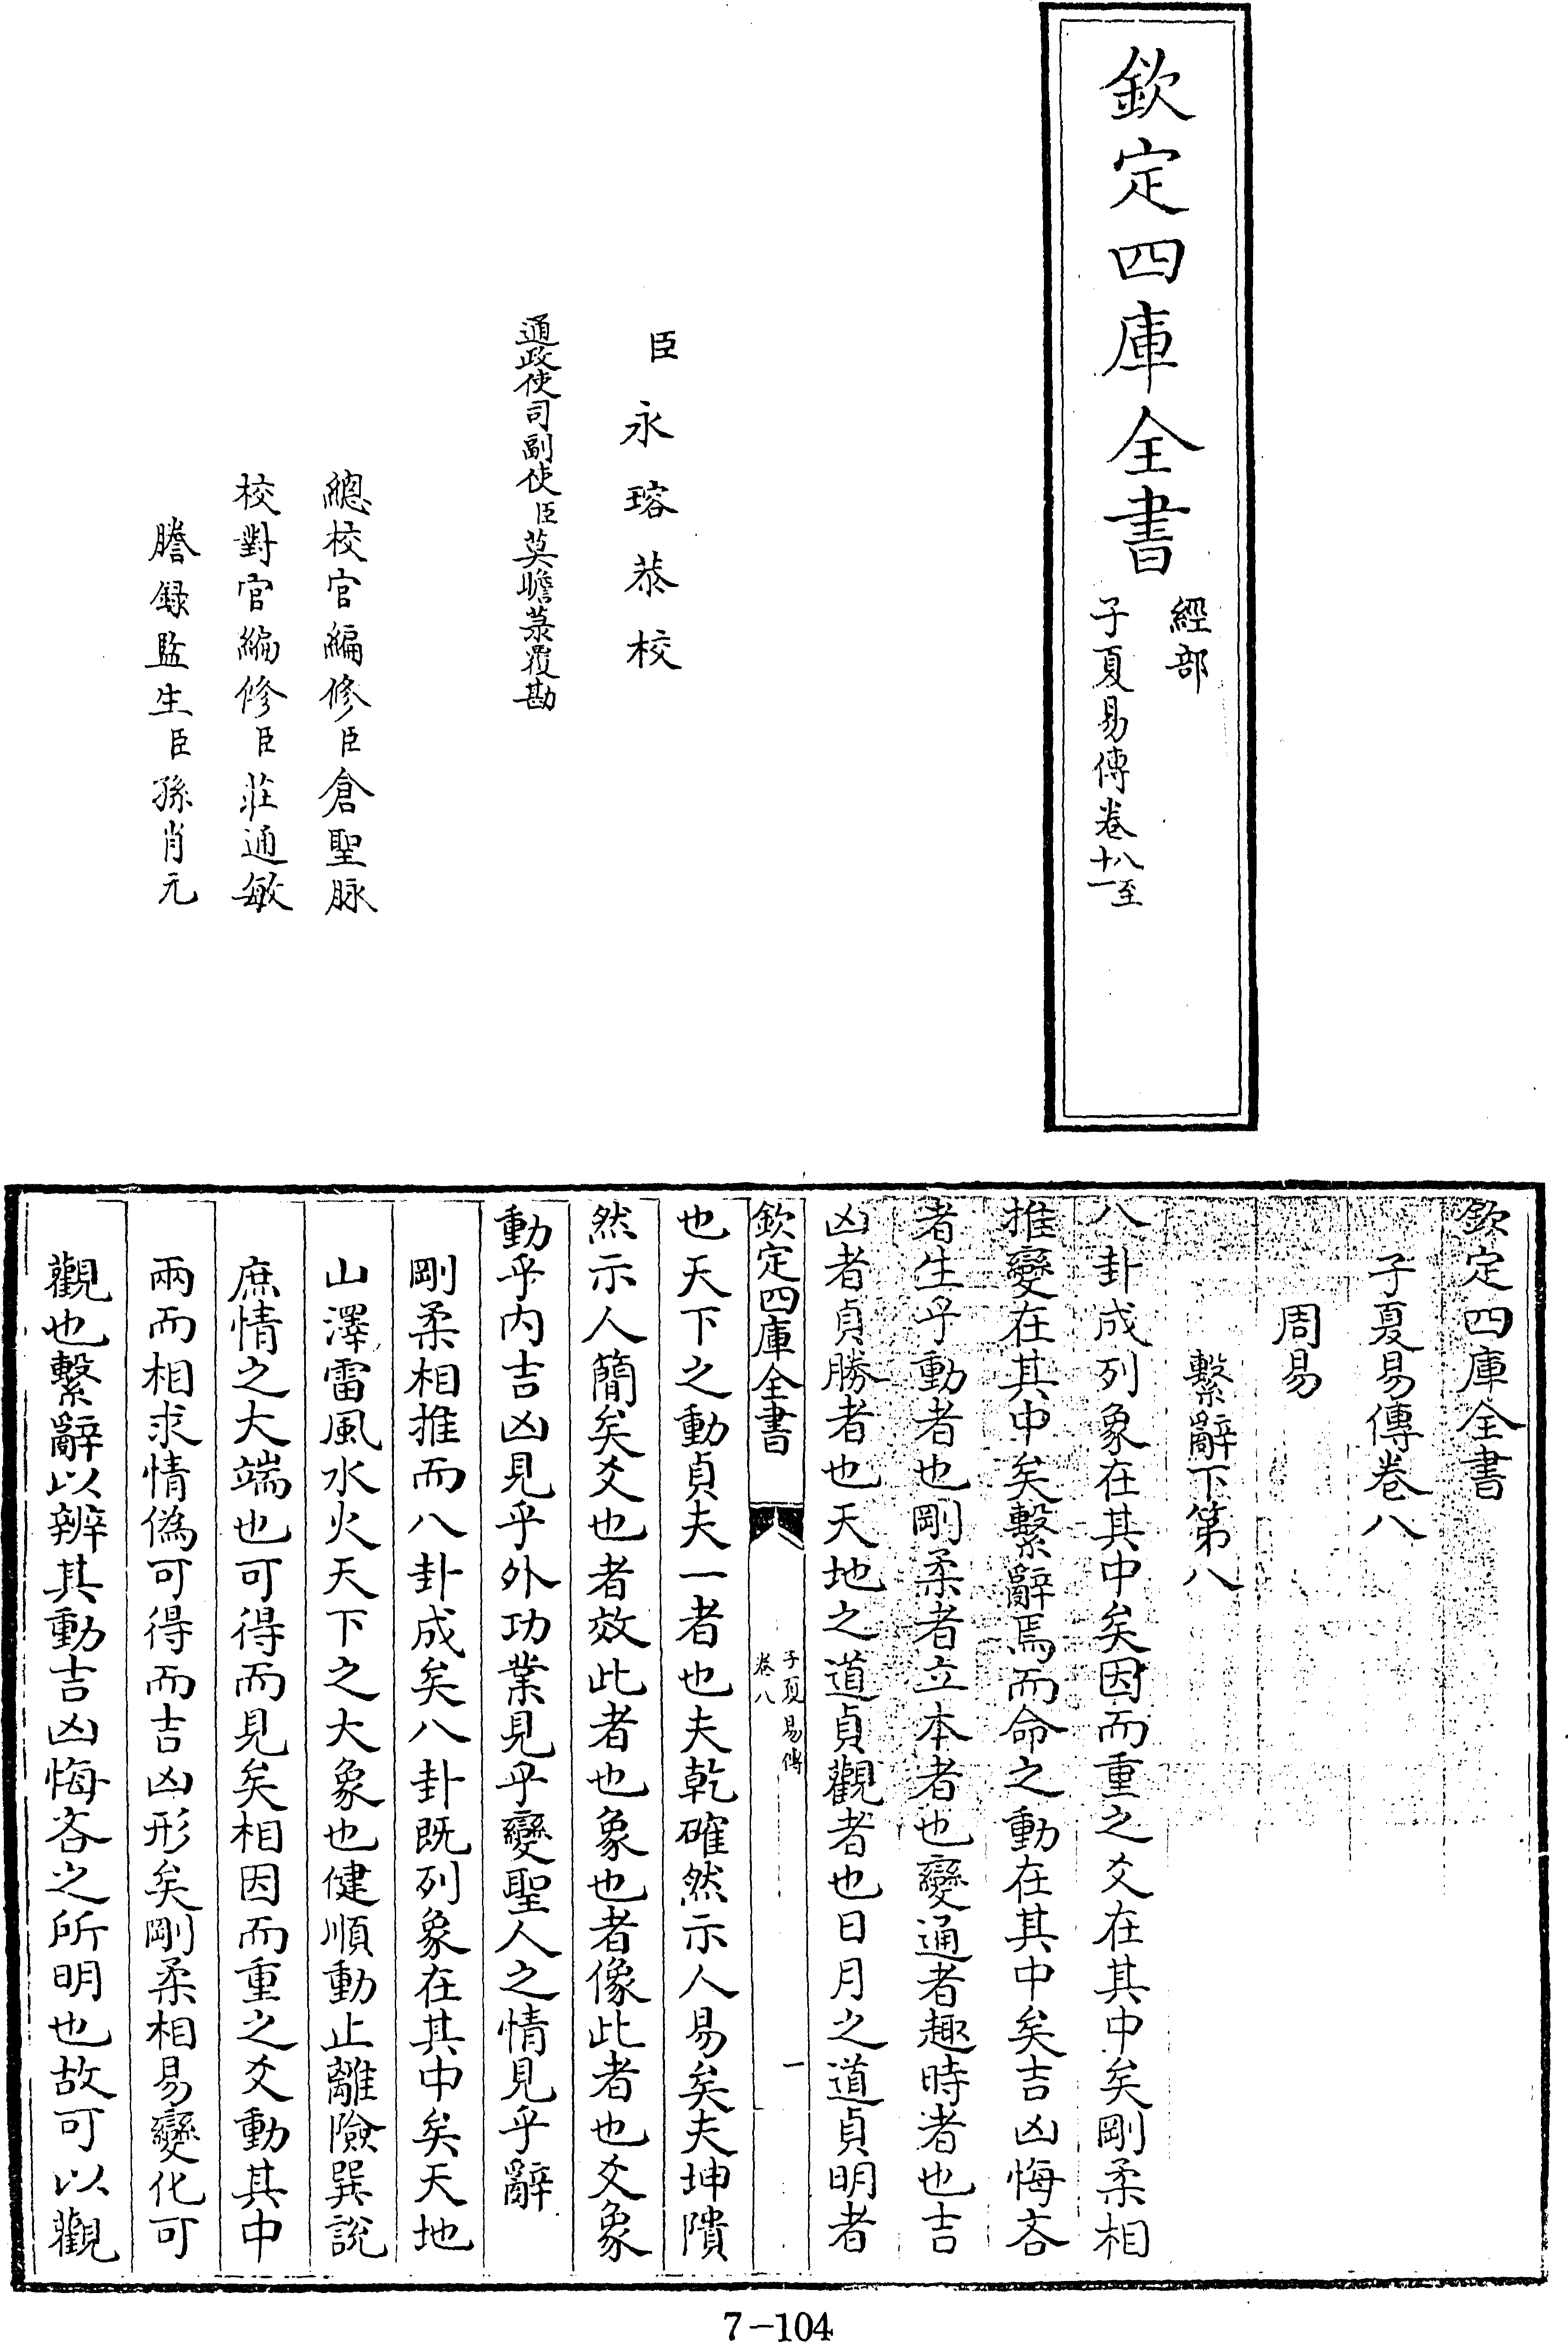 欽定四庫全書
經部
子夏易傳卷八至
十一
臣永瑢恭校
通政使司副使臣莫瞻菉覆勘
總校官編修臣倉聖脉
校對官編修臣莊通敏
謄錄監生臣孫肖元
欽定四庫全書
子夏易傳卷八
周易
繫辭下第八
八卦成列象在其中矣因而重之爻在其中矣剛柔相
推變在其中矣繫辭焉而命之動在其中矣吉凶悔吝
者生乎動者也剛柔者立本者也變通者趣時者也吉
凶者貞勝者也天地之道貞觀者也日月之道貞明者
欽定四庫全書
子夏易傳
卷八
一
也天下之動貞夫一者也夫乾確然示人易矣夫坤隤
然示人簡矣爻也者效此者也象也者像此者也爻象
動乎內吉凶見乎外功業見乎變聖人之情見乎辭
剛柔相推而八卦成矣八卦既列象在其中矣天地
山澤雷風水火天下之大象也健順動止離險巽說
庶情之大端也可得而見矣相因而重之爻動其中
兩而相求情偽可得而吉凶形矣剛柔相易變化可
觀也繫辭以辨其動吉凶悔吝之所明也故可以觀
7-104